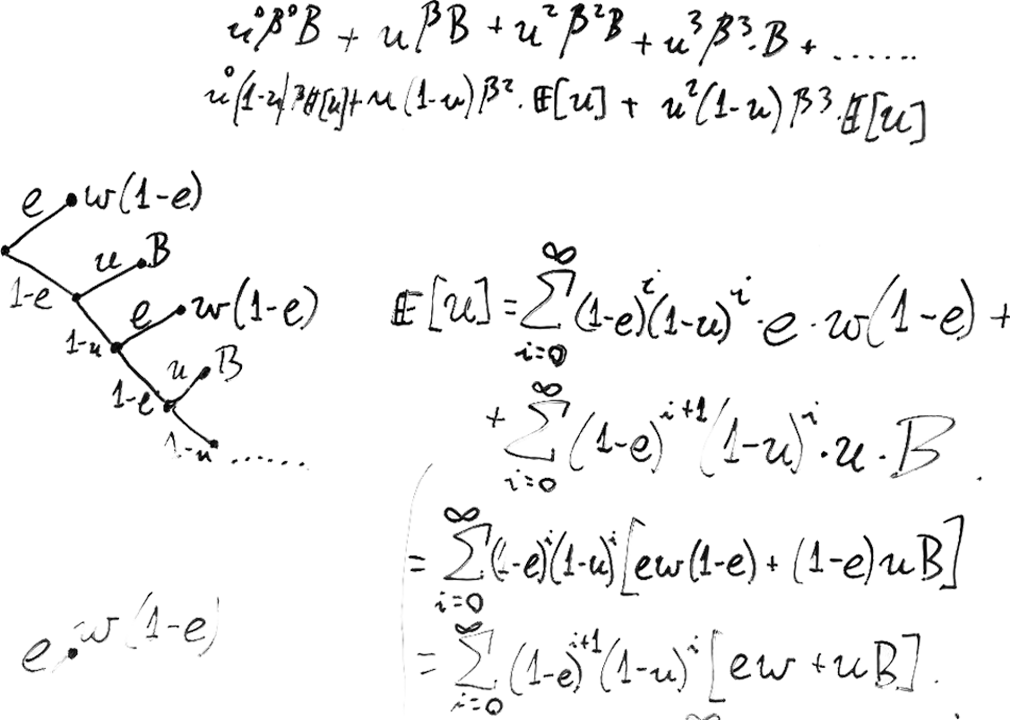 u⁰β⁰B + uβB + u²β²B + u³β³·B + ......
u⁰(1-u)β𝔼[u] + u(1-u)β²·𝔼[u] + u²(1-u)β³·𝔼[u]
e w(1-e)
u B
1-e
e w(1-e)
1-u
u B
1-e
1-u ......
𝔼[u] = ∑_{i=0}^{∞} (1-e)^i (1-u)^i · e · w(1-e) +
+ ∑_{i=0}^{∞} (1-e)^{i+1} (1-u)^i · u · B .
= ∑_{i=0}^{∞} (1-e)^i (1-u)^i [ew(1-e) + (1-e)uB]
= ∑_{i=0}^{∞} (1-e)^{i+1} (1-u)^i [ew + uB].
e w(1-e)